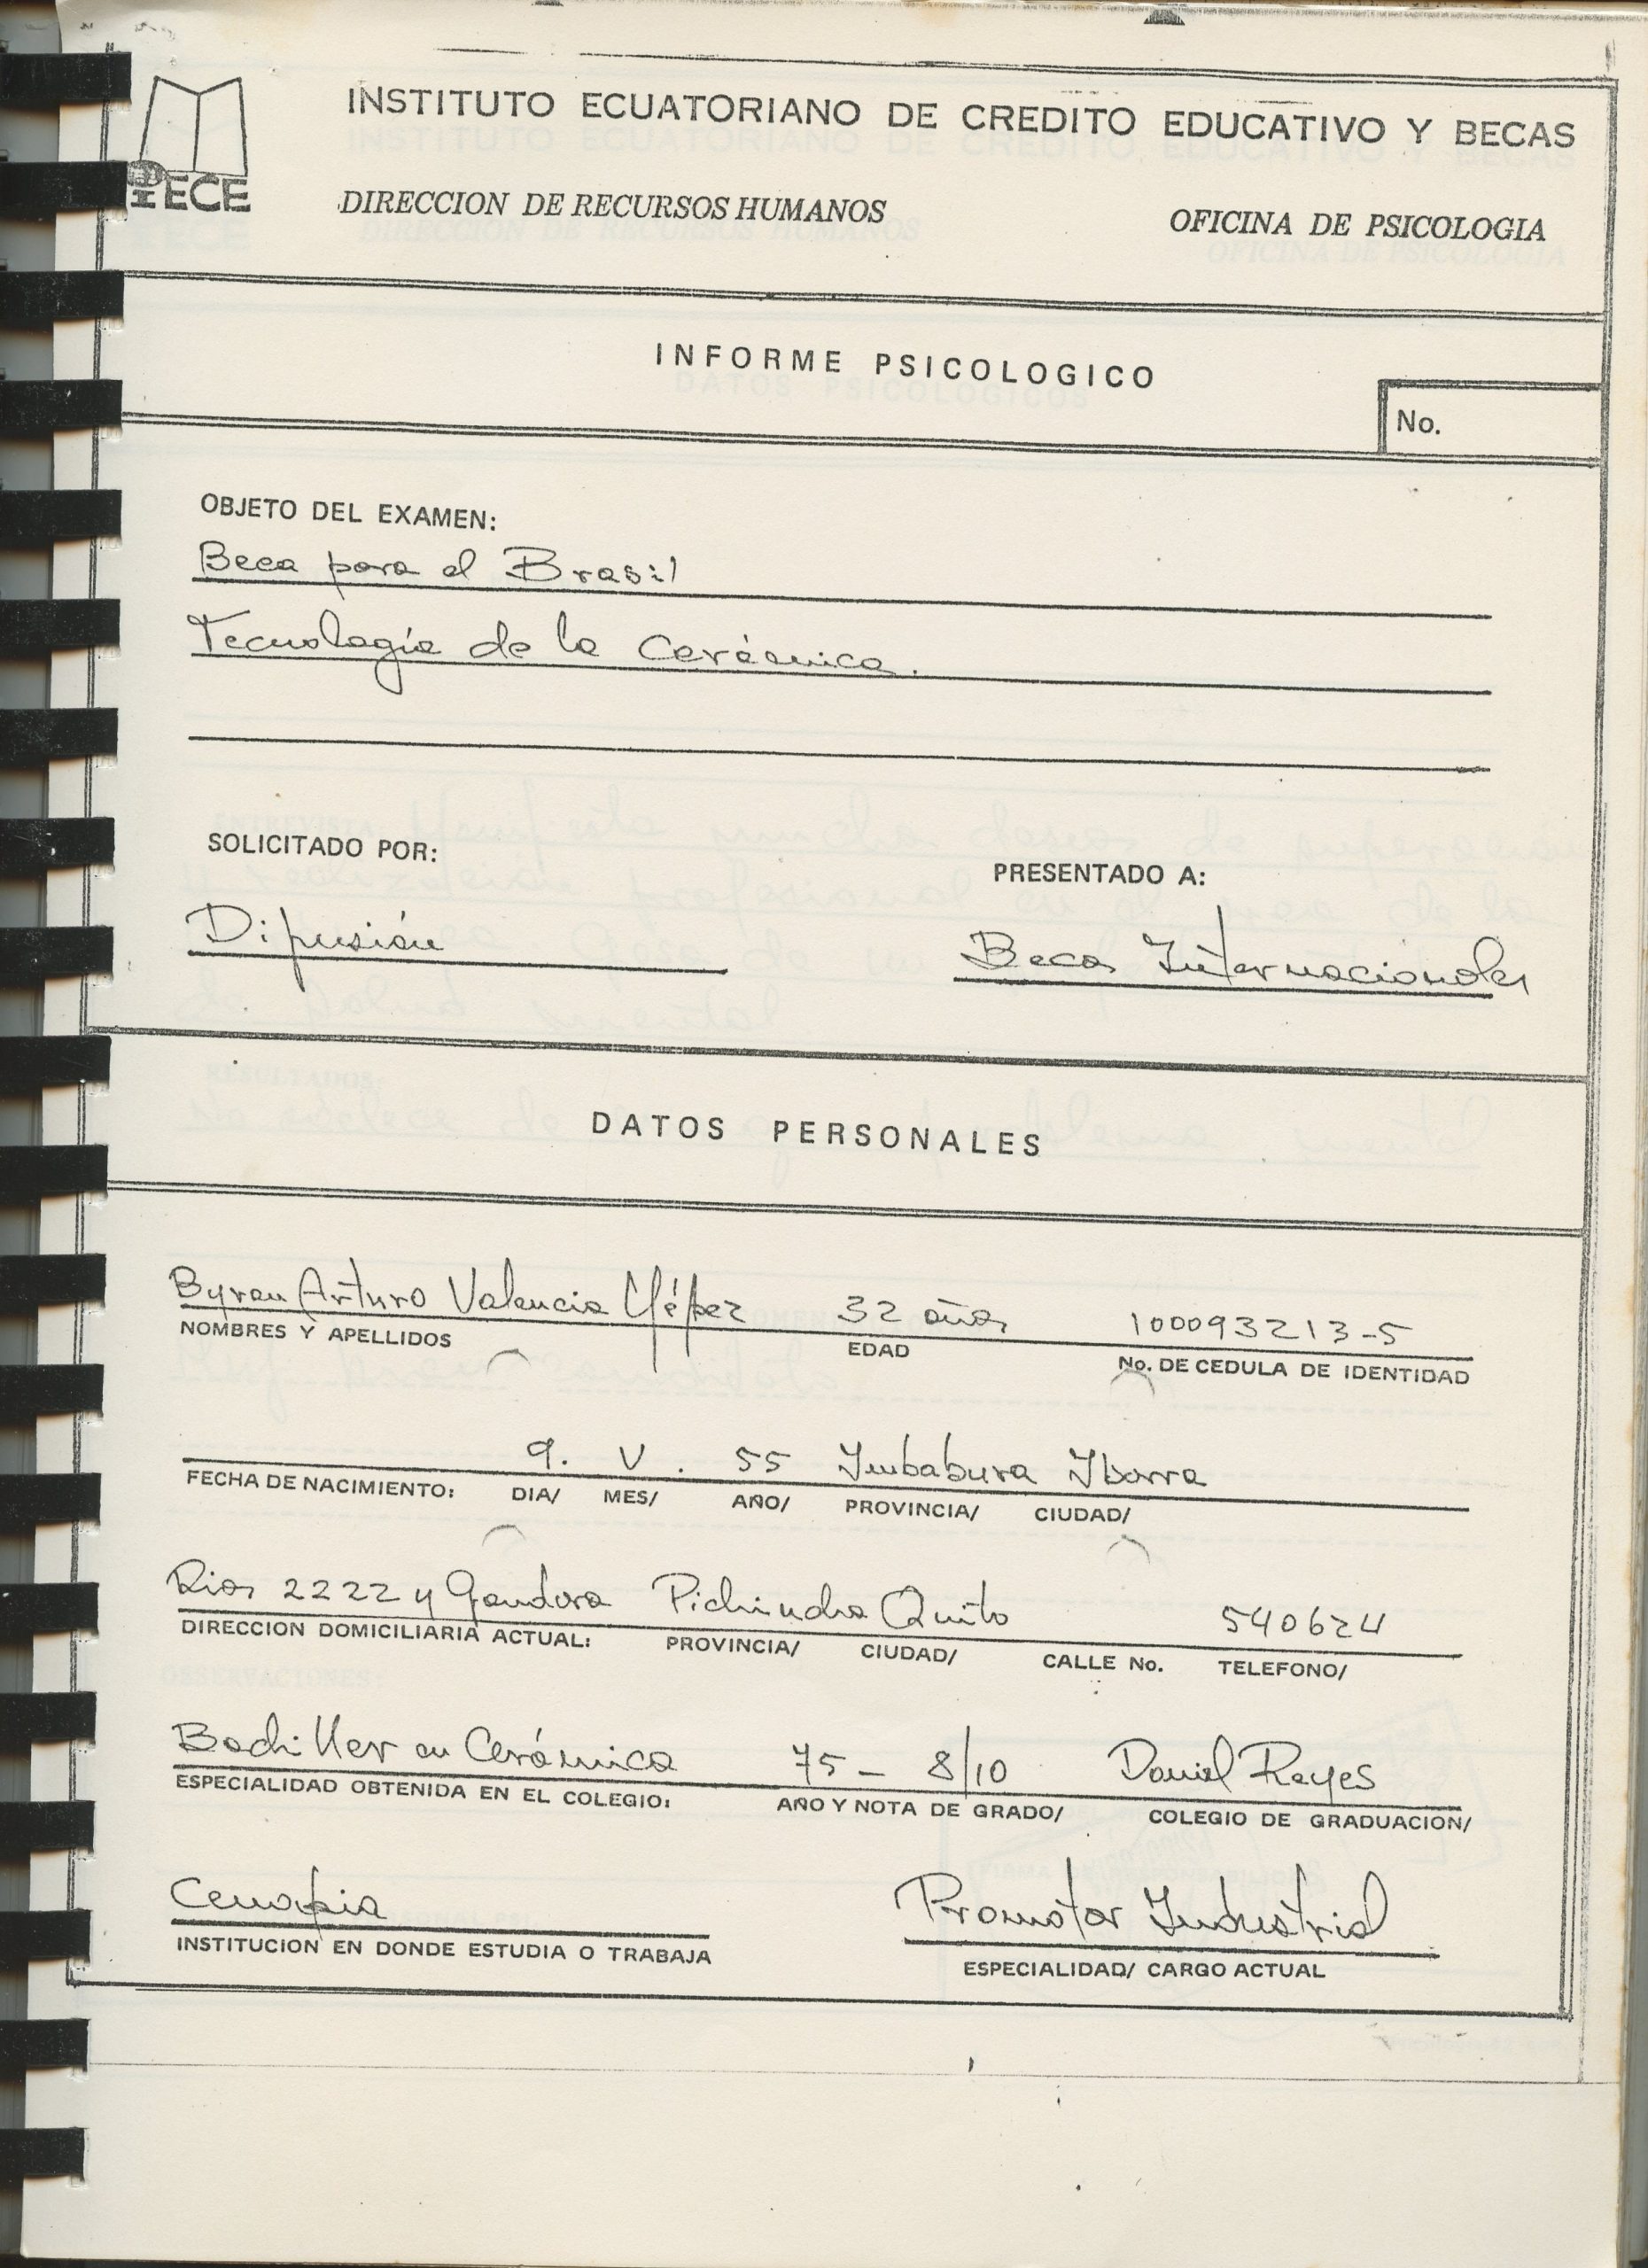 INSTITUTO ECUATORIANO DE CREDITO EDUCATIVO Y BECAS
IECE
DIRECCION DE RECURSOS HUMANOS OFICINA DE PSICOLOGIA
INFORME PSICOLOGICO
No.
OBJETO DEL EXAMEN:
Beca para el Brasil
Tecnología de la Cerámica.
SOLICITADO POR:
PRESENTADO A:
Difusión
Becas Internacionales
DATOS PERSONALES
Byron Arturo Valencia Yépez 32 años 100093213-5
NOMBRES Y APELLIDOS EDAD No. DE CEDULA DE IDENTIDAD
9. V. 55 Imbabura Ibarra
FECHA DE NACIMIENTO: DIA/ MES/ AÑO/ PROVINCIA/ CIUDAD/
Ríos 2222 y Gándara Pichincha Quito 540624
DIRECCION DOMICILIARIA ACTUAL: PROVINCIA/ CIUDAD/ CALLE No. TELEFONO/
Bachiller en Cerámica 75 - 8/10 Daniel Reyes
ESPECIALIDAD OBTENIDA EN EL COLEGIO: AÑO Y NOTA DE GRADO/ COLEGIO DE GRADUACION/
Cenapia Promotor Industrial
INSTITUCION EN DONDE ESTUDIA O TRABAJA ESPECIALIDAD/ CARGO ACTUAL